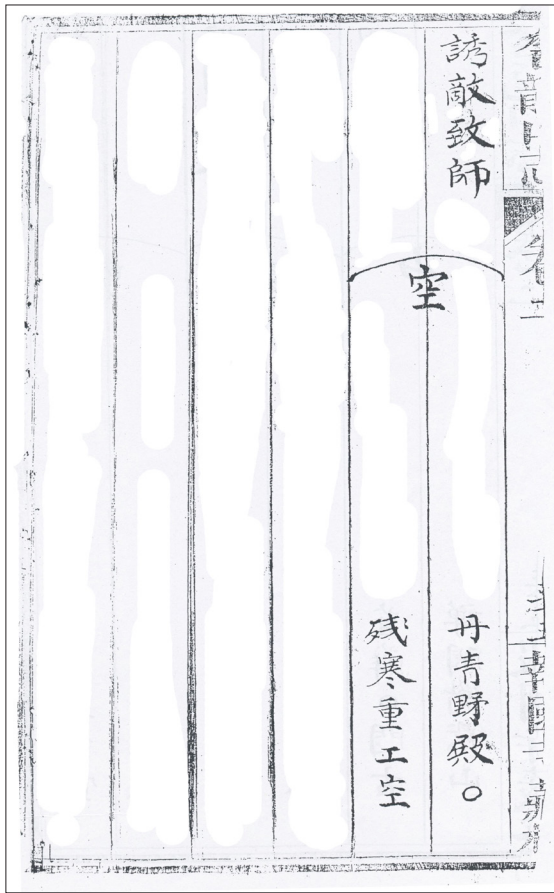 誘敵致師
空
丹青野殿○
残寒重工空